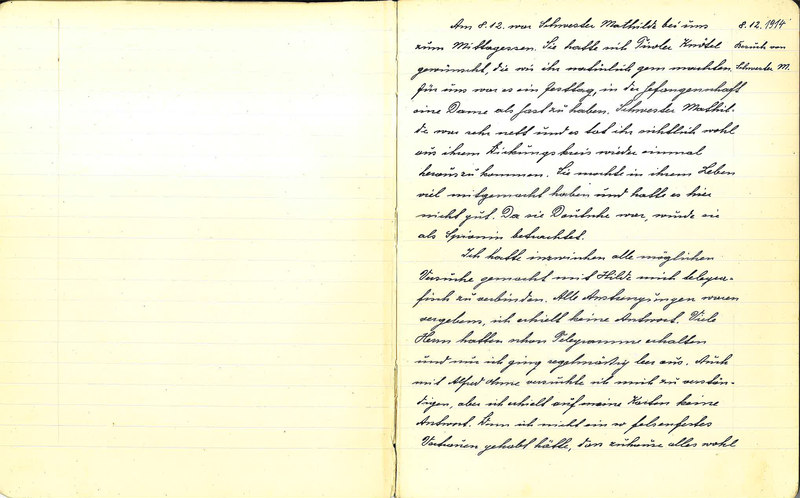 Am 8.12. war Schwester Mathilde bei uns
zum Mittagessen. Sie hatte sich Tiroler Knödel
gewünscht, die wir ihr natürlich gern machten.
Für uns war es ein Festtag, in der Gefangenschaft
eine Dame als Gast zu haben. Schwester Mathil-
de war sehr nett und es tat ihr sichtlich wohl
aus ihrem Wirkungskreis wieder einmal
herauszukommen. Sie mochte in ihrem Leben
viel mitgemacht haben und hatte es hier
nicht gut. Da sie Deutsche war, wurde sie
als Spionin betrachtet.
Ich hatte inzwischen alle möglichen
Versuche gemacht mit Hilde mich telegra-
fisch zu verbinden. Alle Anstrengungen waren
vergebens, ich erhielt keine Antwort. Viele
Herrn hatten schon Telegramme erhalten
und nur ich ging regelmässig leer aus. Auch
mit Alfred versuchte ich mich zu verstän-
digen, aber ich erhielt auf meine Karten keine
Antwort. Wenn ich nicht ein so felsenfestes
Vertrauen gehabt hätte, dass zuhause alles wohl
8.12.1914
Besuch von
Schwester M.